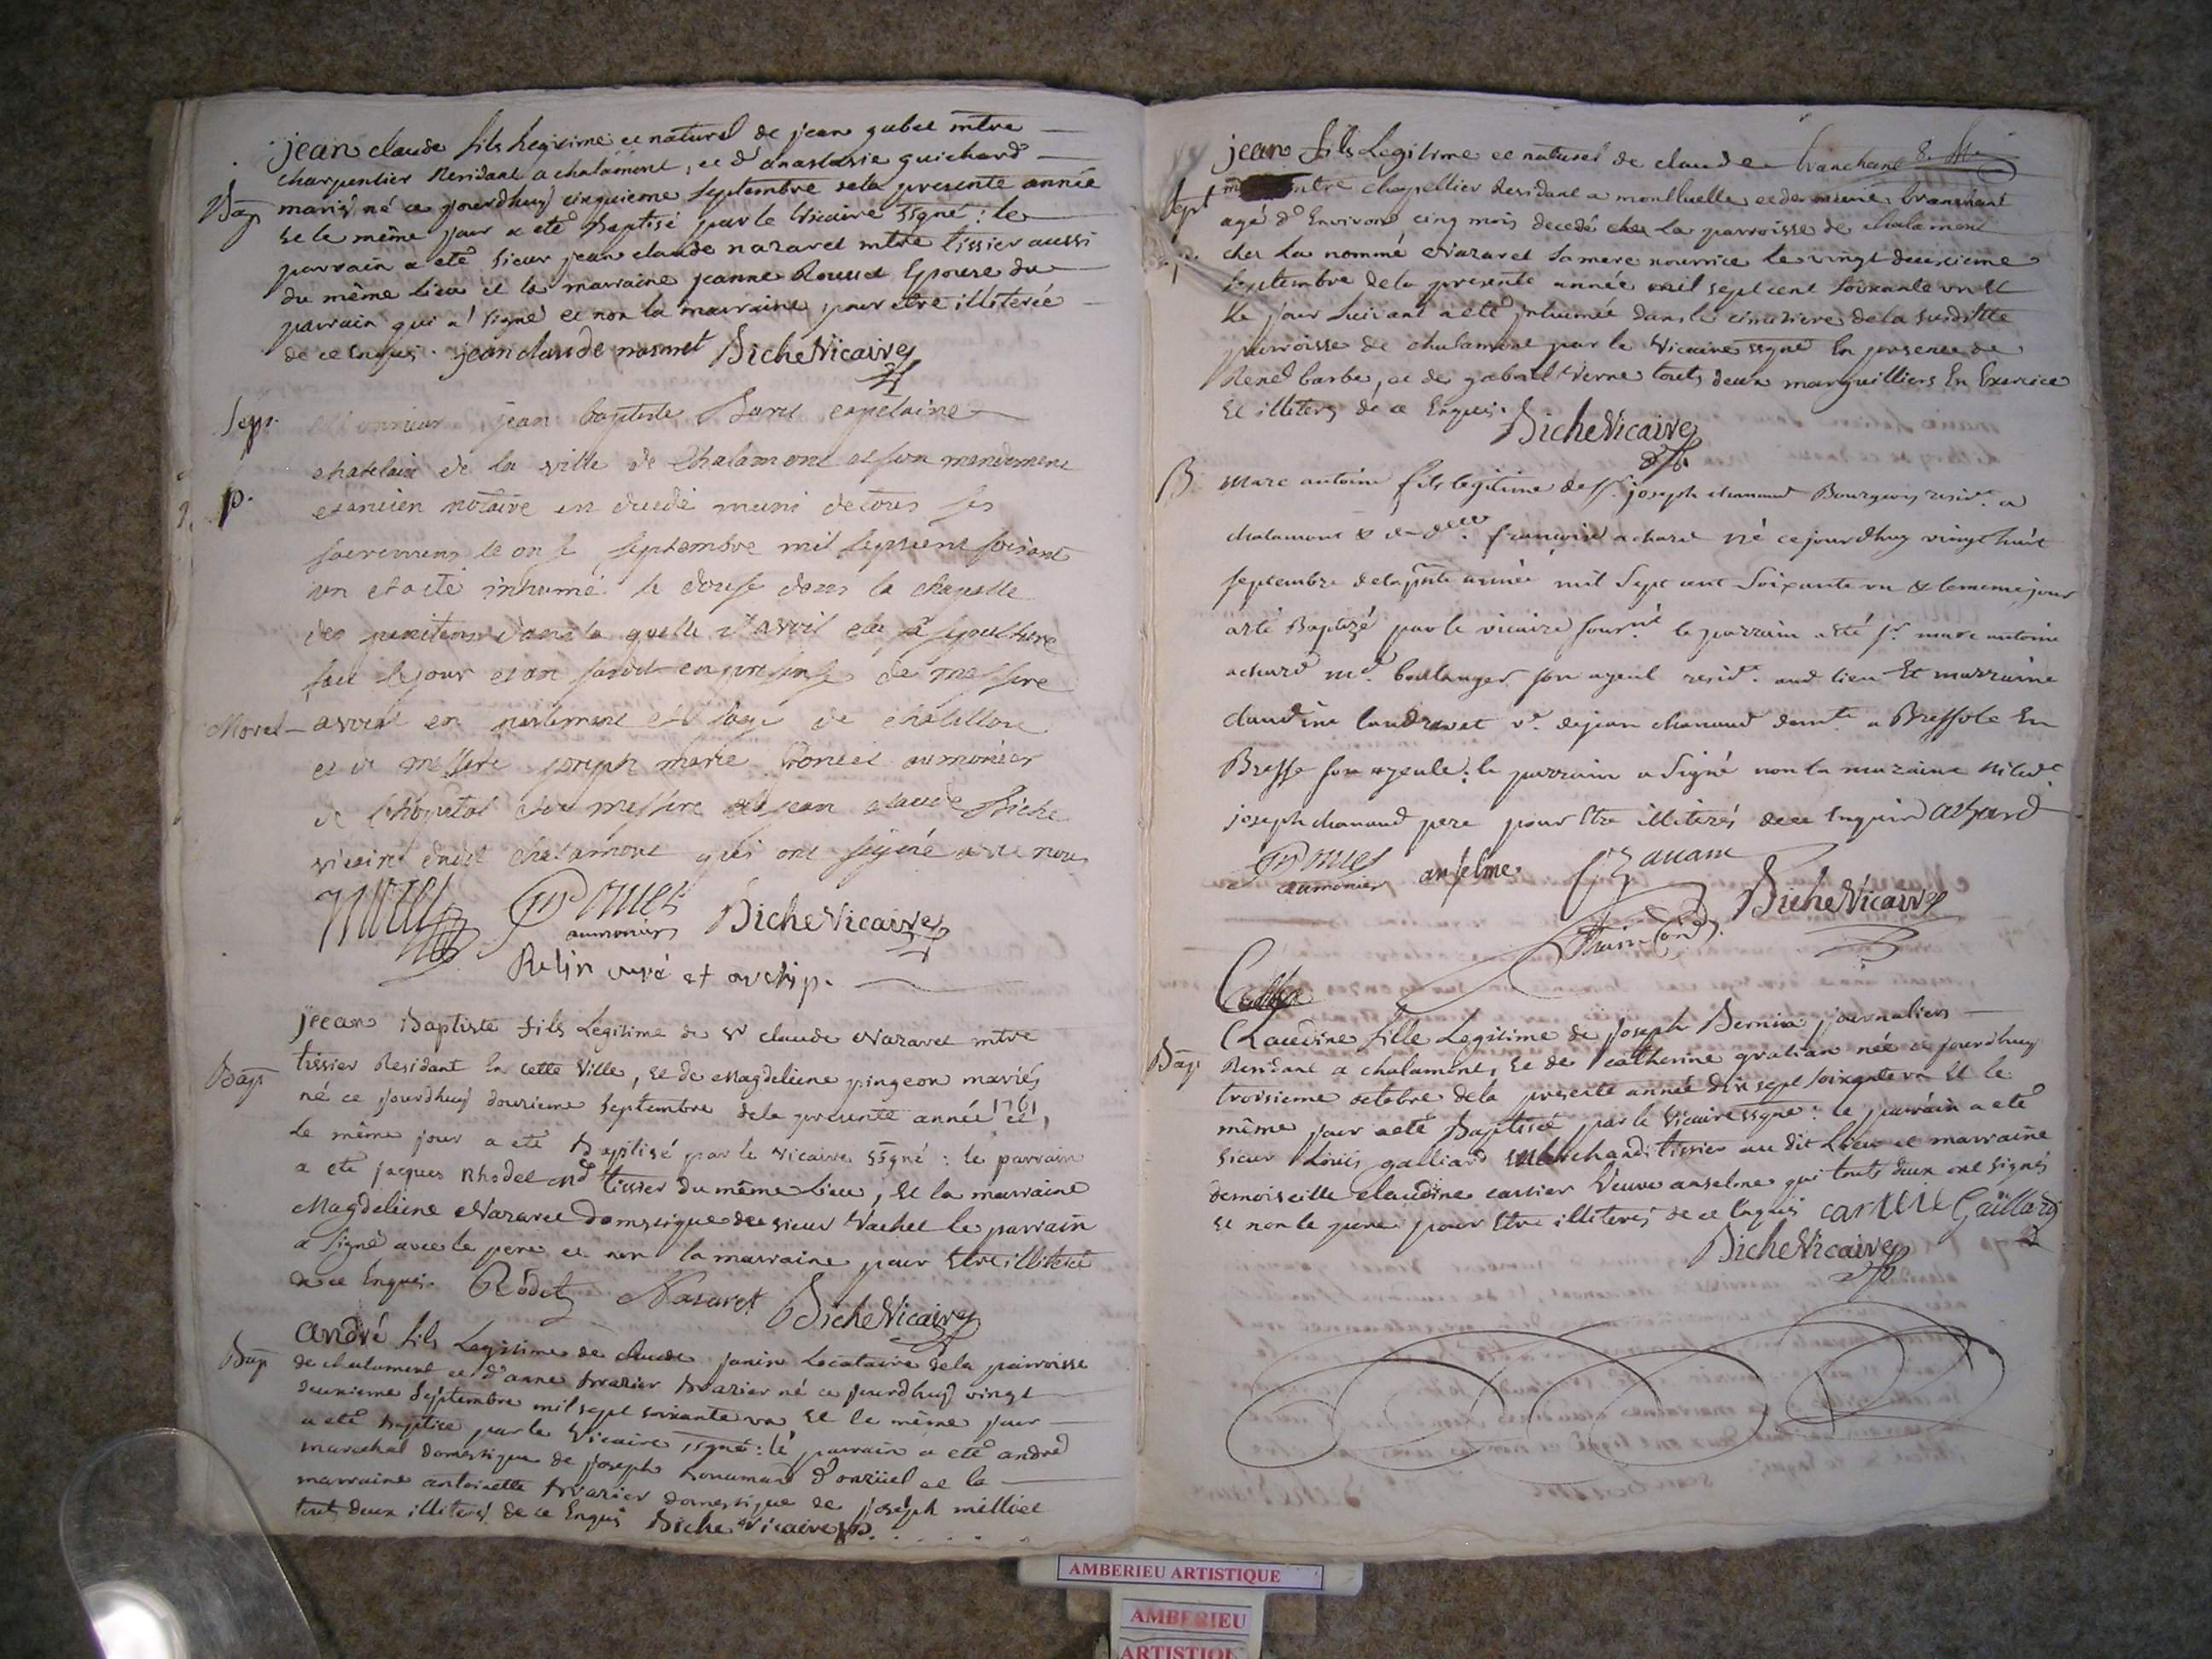 jean claude fils Legitime et naturel de jean gubet mtre
charpentier Residant a chalamont, et d'anastasie guichard
Bap mariés né ce jourdhuy cinquieme septembre dela presente année
et le même jour a eté Baptisé par le Vicaire ssgné : le
parrain a eté sieur jean claude nazaret mtre tissier aussi
du même lieu et la marraine jeanne Rousset Epouse du
parrain qui a signé et non la marraine pour etre illiterée
de ce Enquis. jean claude nasaret Biche Vicaire
Sep. jean baptiste capitaine
chatelain de la ville de Chalamont et son mandement
p. et ancien notaire est decedé muni de tous ses
sacremens le onse septembre mil sept cent soisant
un et a eté inhumé le douse dans la chapelle
des penitens dans la quelle il avoit elu sa sepulture
fait le jour et an susdit en presense de messire
Morel avocat en parlement et juge de chatillon
et de messire joseph marie aumonier
de l'hopital de messire jean claude Biche
vicaire dudit chalamont qui ont signé avec nous
Morel aumonier Biche Vicaire
curé et archip.
jeean Baptiste fils Legitime de Sr claude Nazaret mtre
tissier Residant En cette Ville, et de Magdeleine pingeon mariés
Bap né ce jourdhuy douzieme septembre dela presente année 1761 et,
Le même jour a eté Baptisé par le Vicaire ssgné : le parrain
a eté jacques Rhodet md tissier du même Lieu, et la marraine
Magdeleine Nazaret domestique de sieur Vachet le parrain
a signé avec le pere et non la marraine pour Etre illiterée
de ce Enquis. Rôdet Nasaret Biche Vicaire
Bap andré fils Legitime de claude janin Locataire dela parroisse
de chalamont et d'anne né ce jourdhuy vingt
deuxieme septembre mil sept soixante un et le même jour
a eté Baptisé par le Vicaire ssgné : le parrain a eté andré
marechal domestique de joseph et la
marraine antoinette domestique de joseph milliet
tout deux illiterés de ce Enquis Biche Vicaire
jean fils Legitime et naturel de claude branchant
Sept mtre chapellier Residant a montluelle et de branchant
agé d'Environ cinq mois decedé la parroisse de chalamont
p. chez La nommé Nazaret sa mere nourrice le vingt deuxieme
septembre dela presente année mil sept cent soixante un et
Le jour suivant a eté inhumé dans le cimetiere de la susditte
parroisse de chalamont par le Vicaire ssgné En presence de
René barbe, et de gabriel Verne touts deux marguilliers En Exercice
et illiterés de ce Enquis. Biche Vicaire
B. Marc antoine fils legitime de Sr. joseph chanaud Bourgeois resid. a
chalamont & de françoise achard né ce jourdhuy vingt huit
septembre dela pnte année mil sept cent soixante un & le meme jour
a eté Baptizé par le vicaire le parrain a eté sr. marc antoine
achard md. boulanger son ayeul resid. aud. lieu et marraine
claudine ve. de jean chanaud a Bressole En
Bresse son ayeule : le parrain a signé non la maraine ni led.
joseph chanaud pere pour Etre illiterés de ce Enquis achard
aumonier anselme Biche Vicaire
Claudine fille Legitime de joseph Bernin journaliers
Bap Residant a chalamont, et de catherine gratian née ce jourdhuy
troisieme octobre dela presente année dix sept soixante un et le
même jour a eté Baptisée par le Vicaire ssgné : le parrain a eté
sieur Loüis galliard marchand tissier au dit Lieu et marraine
demoiselle claudine cartier Veuve anselme qui touts deux ont signés
et non le pere pour Etre illiterés de ce Enquis cartier Gaillard
Biche Vicaire
AMBERIEU ARTISTIQUE
AMBERIEU
ARTISTIQUE